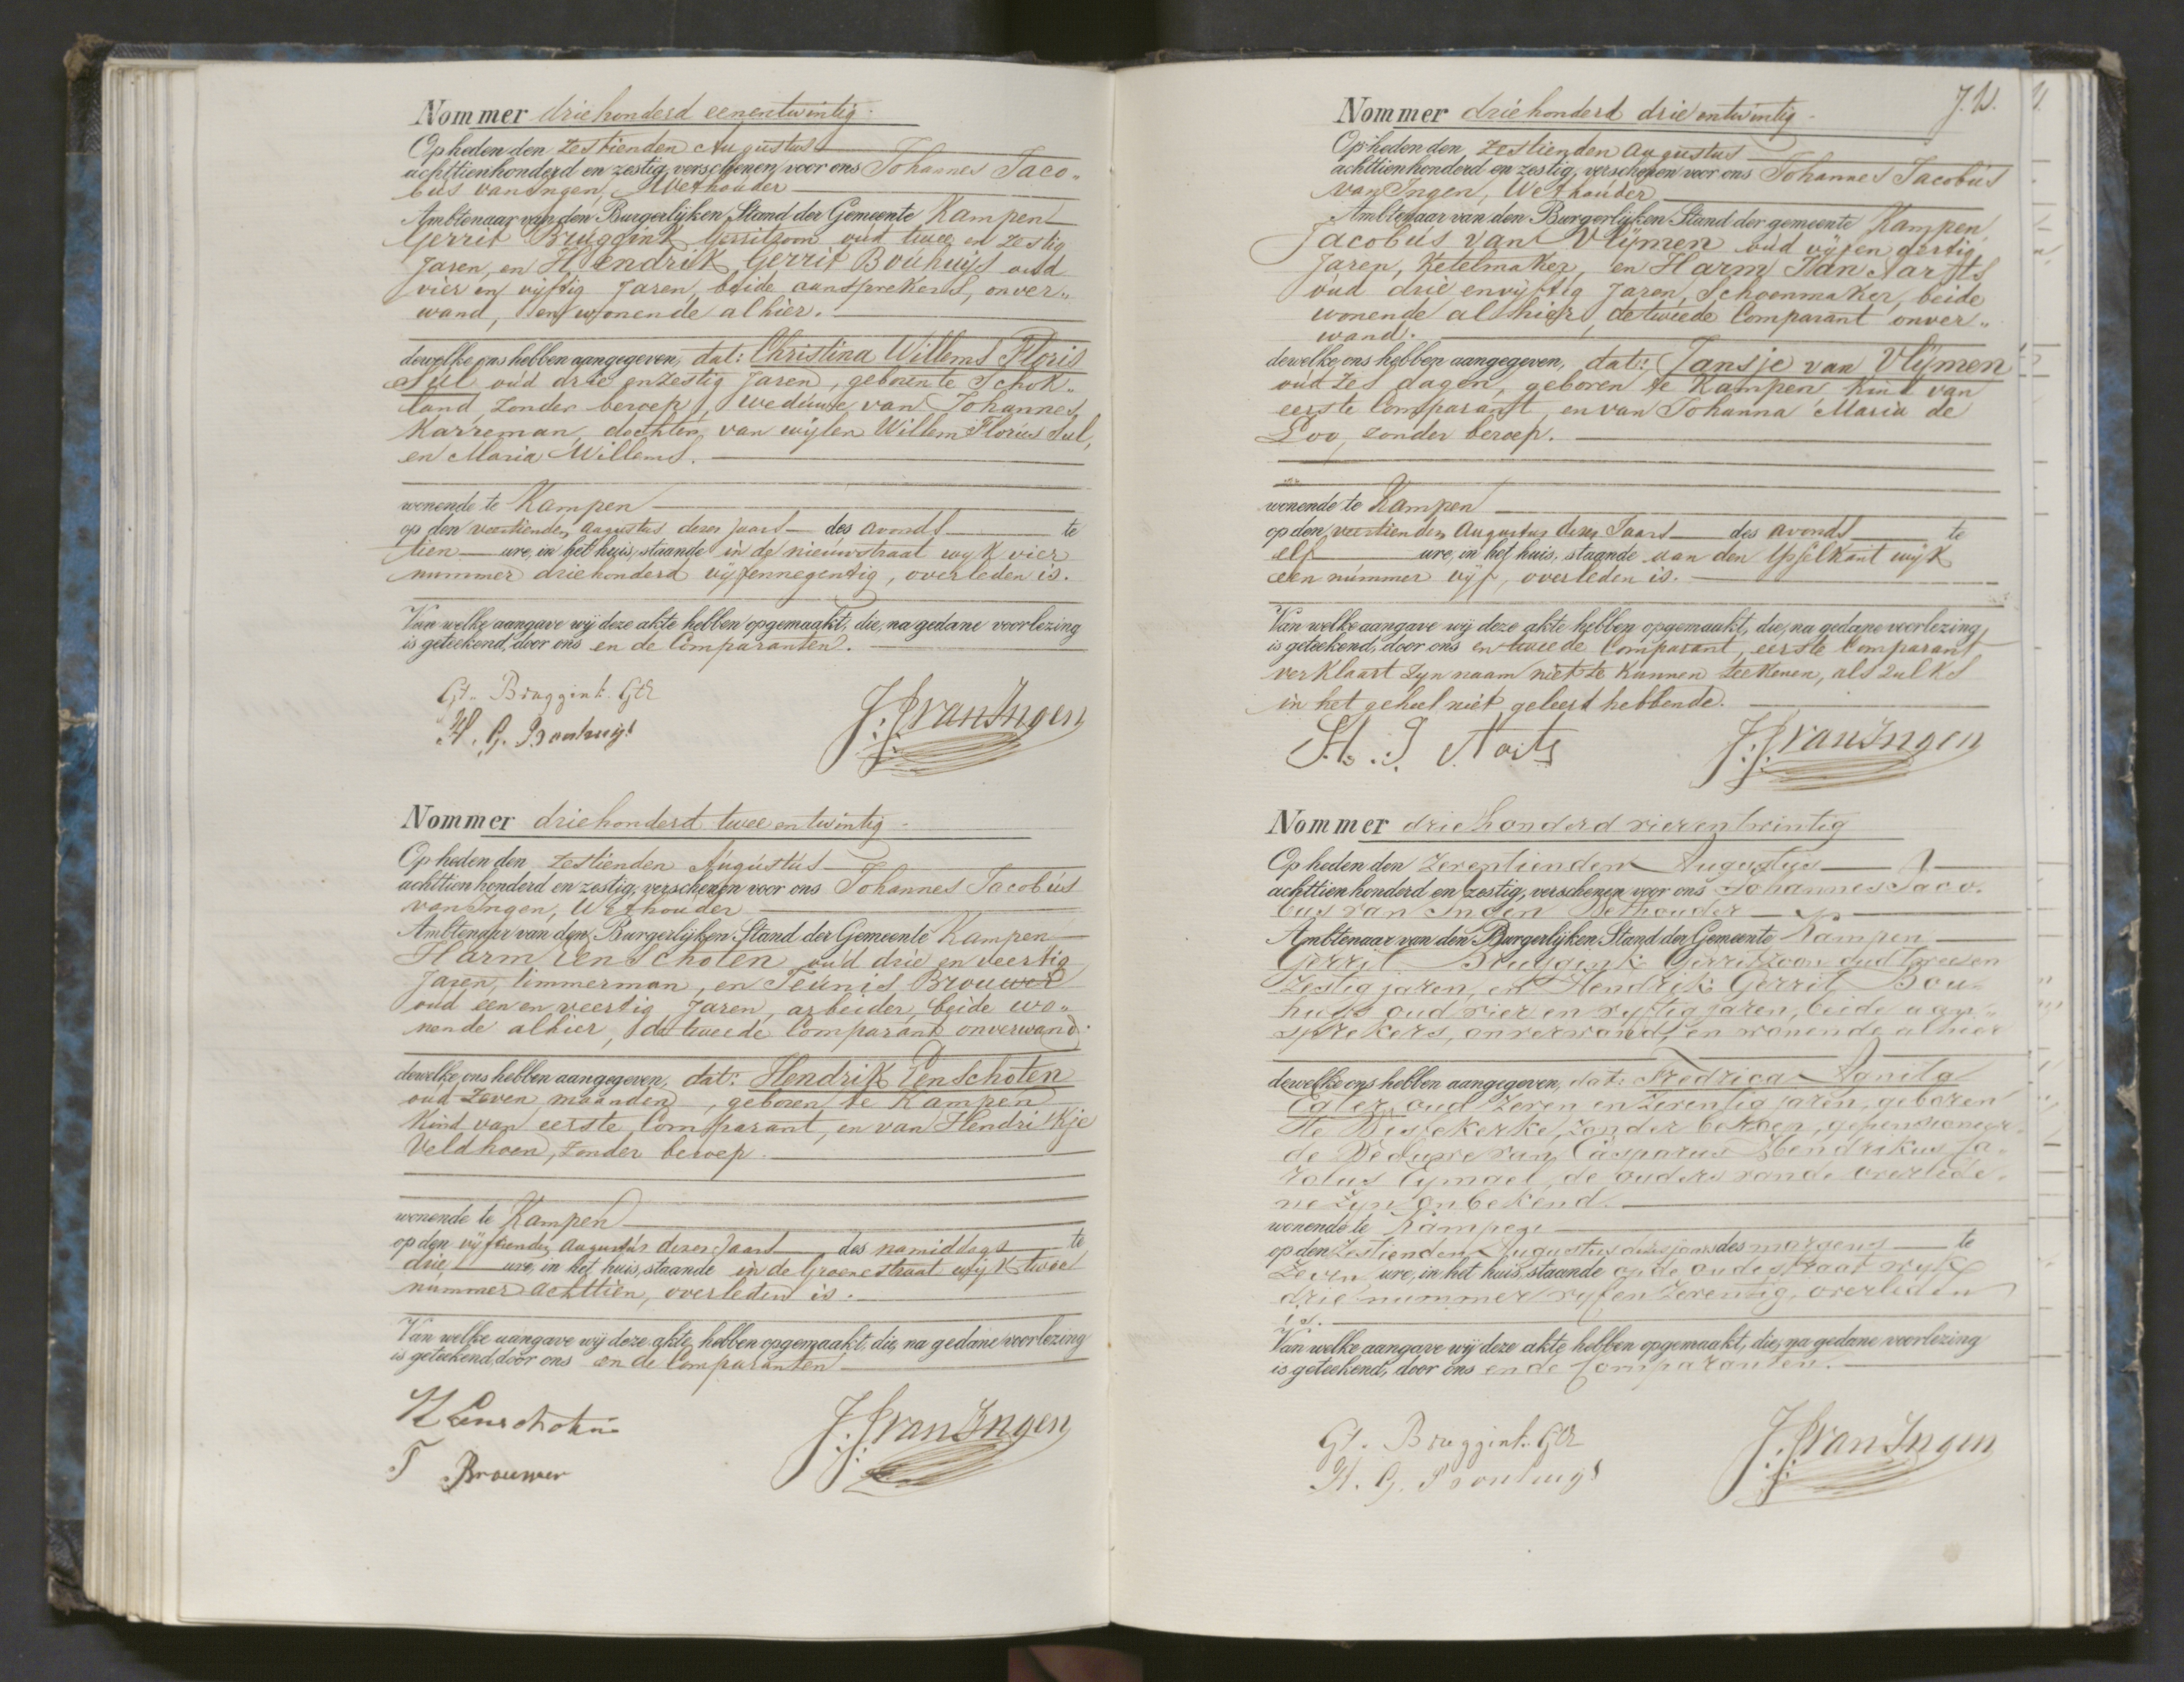 Nommer driehonderd eenentwintig.
Op heden den zestienden Augustus
achttienhonderd en zestig, verschenen voor ons Johannes Jaco„
bus van Ingen, Wethouder
Ambtenaar van den Burgerlijken Stand der Gemeente Kampen
Gerrit Bruggink Gerritzoon oud twee en zestig
Jaren, en Hendrik Gerrit Bouhuijs oud
vier en vijftig Jaren, beide aansprekers, onver„
wand, en wonende alhier.
dewelke ons hebben aangegeven, dat: Christina Willems Floris
Sul oud drie en zestig Jaren, geboren te Schok„
land, zonder beroep, Weduwe van Johannes
Karreman, dochter van wijlen Willem Floris Sul,
en Maria Willems.
wonende te Kampen
op den veertienden Augustus dezes Jaars des avonds te
tien ure, in het huis, staande in de nieuwstraat wijk vier
nummer driehonderd vijfennegentig, overleden is.
Van welke aangave wij deze akte hebben opgemaakt, die, na gedane voorlezing
is geteekend, door ons en de Comparanten.
Gt. Bruggink. Gtz
H. G. Bouhuijs
J. J. van Ingen
Nommer driehonderd twee entwintig.
Op heden den zestienden Augustus
achttien honderd en zestig, verschenen voor ons Johannes Jacobus
van Ingen, Wethouder
Ambtenaar van den Burgerlijken Stand der Gemeente Kampen
Harm Ten Scholen oud drie en veertig
Jaren, timmerman, en Teunis Brouwer
oud een en veertig Jaren, arbeider, beide wo„
nende alhier, de tweede Comparant onverwand.
dewelke ons hebben aangegeven, dat: Hendrik Ten Scholen
oud zeven maanden, geboren te Kampen
Kind van eerste Comparant, en van Hendrikje
Veldhoen, zonder beroep.
wonende te Kampen
op den vijftienden Augustus dezes Jaars des namiddags te
drie ure, in het huis, staande in de Groenestraat wijk twee
nummer achttien, overleden is.
Van welke aangave wij deze akte hebben opgemaakt, die, na gedane voorlezing
is geteekend, door ons en de Comparanten
T Brouwer
J. J. van Ingen
J. V.
Nommer driehonderd drie entwintig.
Op heden den zestienden Augustus
achttienhonderd en zestig, verschenen voor ons Johannes Jacobus
van Ingen, Wethouder
Ambtenaar van den Burgerlijken Stand der gemeente Kampen
Jacobus van Vlijmen oud vijf en dertig
Jaren, Ketelmaker, en Harm Jan Aarts
oud drie envijftig Jaren, Schoenmaker, beide
wonende alhier, de tweede Comparant onver„
wand.
dewelke ons hebben aangegeven, dat: Jansje van Vlijmen
oud zes dagen, geboren te Kampen Kind van
eerste Comparant, en van Johanna Maria de
Loo, zonder beroep.
wonende te Kampen
op den veertienden Augustus dezes Jaars des avonds te
elf ure, in het huis, staande aan den IJsselkant wijk
een nummer vijf, overleden is.
Van welke aangave wij deze akte hebben opgemaakt, die, na gedane voorlezing
is geteekend, door ons en tweede Comparant, eerste Comparant
verklaart zijn naam niet te kunnen teekenen, als zulks
in het geheel niet geleerd hebbende.
H. J. Aarts
J. J. van Ingen
Nommer driehonderd vierentwintig
Op heden den zeventienden Augustus
achttien honderd en zestig, verschenen voor ons Johannes Jaco„
bus van Ingen Wethouder
Ambtenaar van den Burgerlijken Stand der Gemeente Kampen
Gerrit Bruggink Gerritzoon oud twee en
zestig jaren, en Hendrik Gerrit Bou„
huijs oud vier en vijftig jaren, beide aan„
sprekers, onverwand, en wonende alhier
dewelke ons hebben aangegeven, dat: Fredrica Agnita
Egter oud zeven en zeventig jaren, geboren
te Biggekerke, zonder beroep, gepensioneer„
de Weduwe van Casparus Hendrikus
Eymael, de ouders van de overlede„
ne zijn onbekend.
wonende te Kampen
op den zestienden Augustus dezes jaars des morgens te
zeven ure, in het huis, staande op de oudestraat wijk
drie nummer vijfen zeventig, overleden
is.
Van welke aangave wij deze akte hebben opgemaakt, die, na gedane voorlezing
is geteekend, door ons en de Comparanten.
Gt. Bruggink. Gtz
H. G. Bouhuijs
J. J. van Ingen